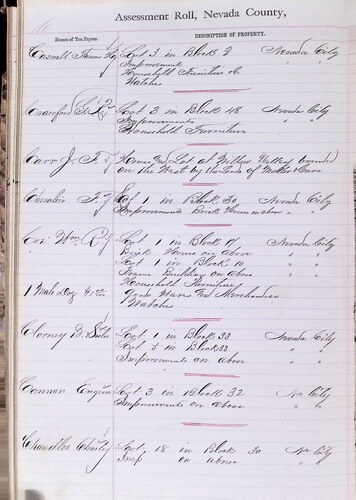 Assessment Roll, Nevada County,
Names of Tax Payers.
DESCRIPTION OF PROPERTY.
Lot 3 in Block 3 Nevada City
Improvements " "
Household Furniture &c
Watches
Crawford Lot 3 in Block 48 Nevada City
Improvements " "
Household Furniture
Carr J. T. House and Lot at Valley bounded
on the West by the Lands of
F. J. Lot 1 in Block 30 Nevada City
Improvements Brick House on above " "
Wm R. Lot 1 in Block 17 Nevada City
Brick House on above " "
Lot 1 in Block 10 " "
Frame Building on above " "
Household Furniture
1 Male Dog Goods Wares and Merchandise
Watches
Lot 1 in Block 33 Nevada City
Lot 3 in Block 33 " "
Improvements on above " "
Cannon Lot 3 in Block 32 Na City
Improvements on above " "
Chandler Charley Lot 18 in Block 30 Na City
Imp on above " "